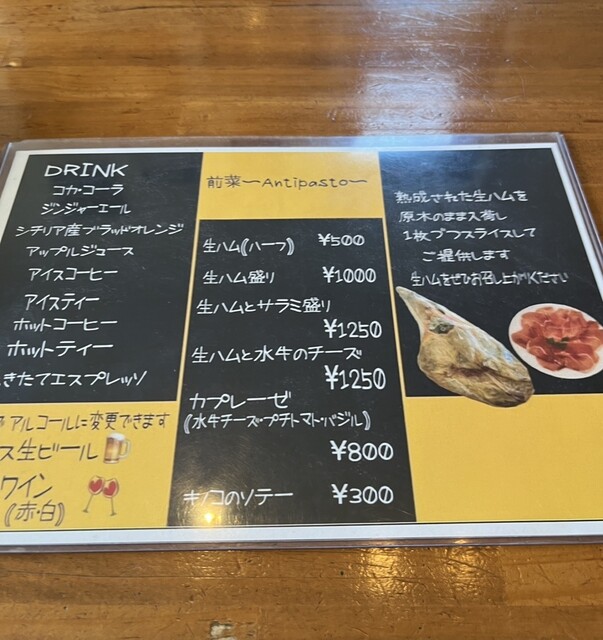 DRINK
コカ・コーラ
ジンジャーエール
シチリア産ブラッドオレンジ
アップルジュース
アイスコーヒー
アイスティー
ホットコーヒー
ホットティー
きたてエスプレッソ
アルコールに変更できます
ス生ビール
ワイン
(赤・白)
前菜〜Antipasto〜
生ハム(ハーフ) ¥500
生ハム盛り ¥1000
生ハムとサラミ盛り
¥1250
生ハムと水牛のチーズ
¥1250
カプレーゼ
(水牛チーズ・プチトマト・バジル)
¥800
キノコのソテー ¥300
熟成された生ハムを
原木のまま入荷し
1枚づつスライスして
ご提供します
生ハムをぜひお召し上がりください